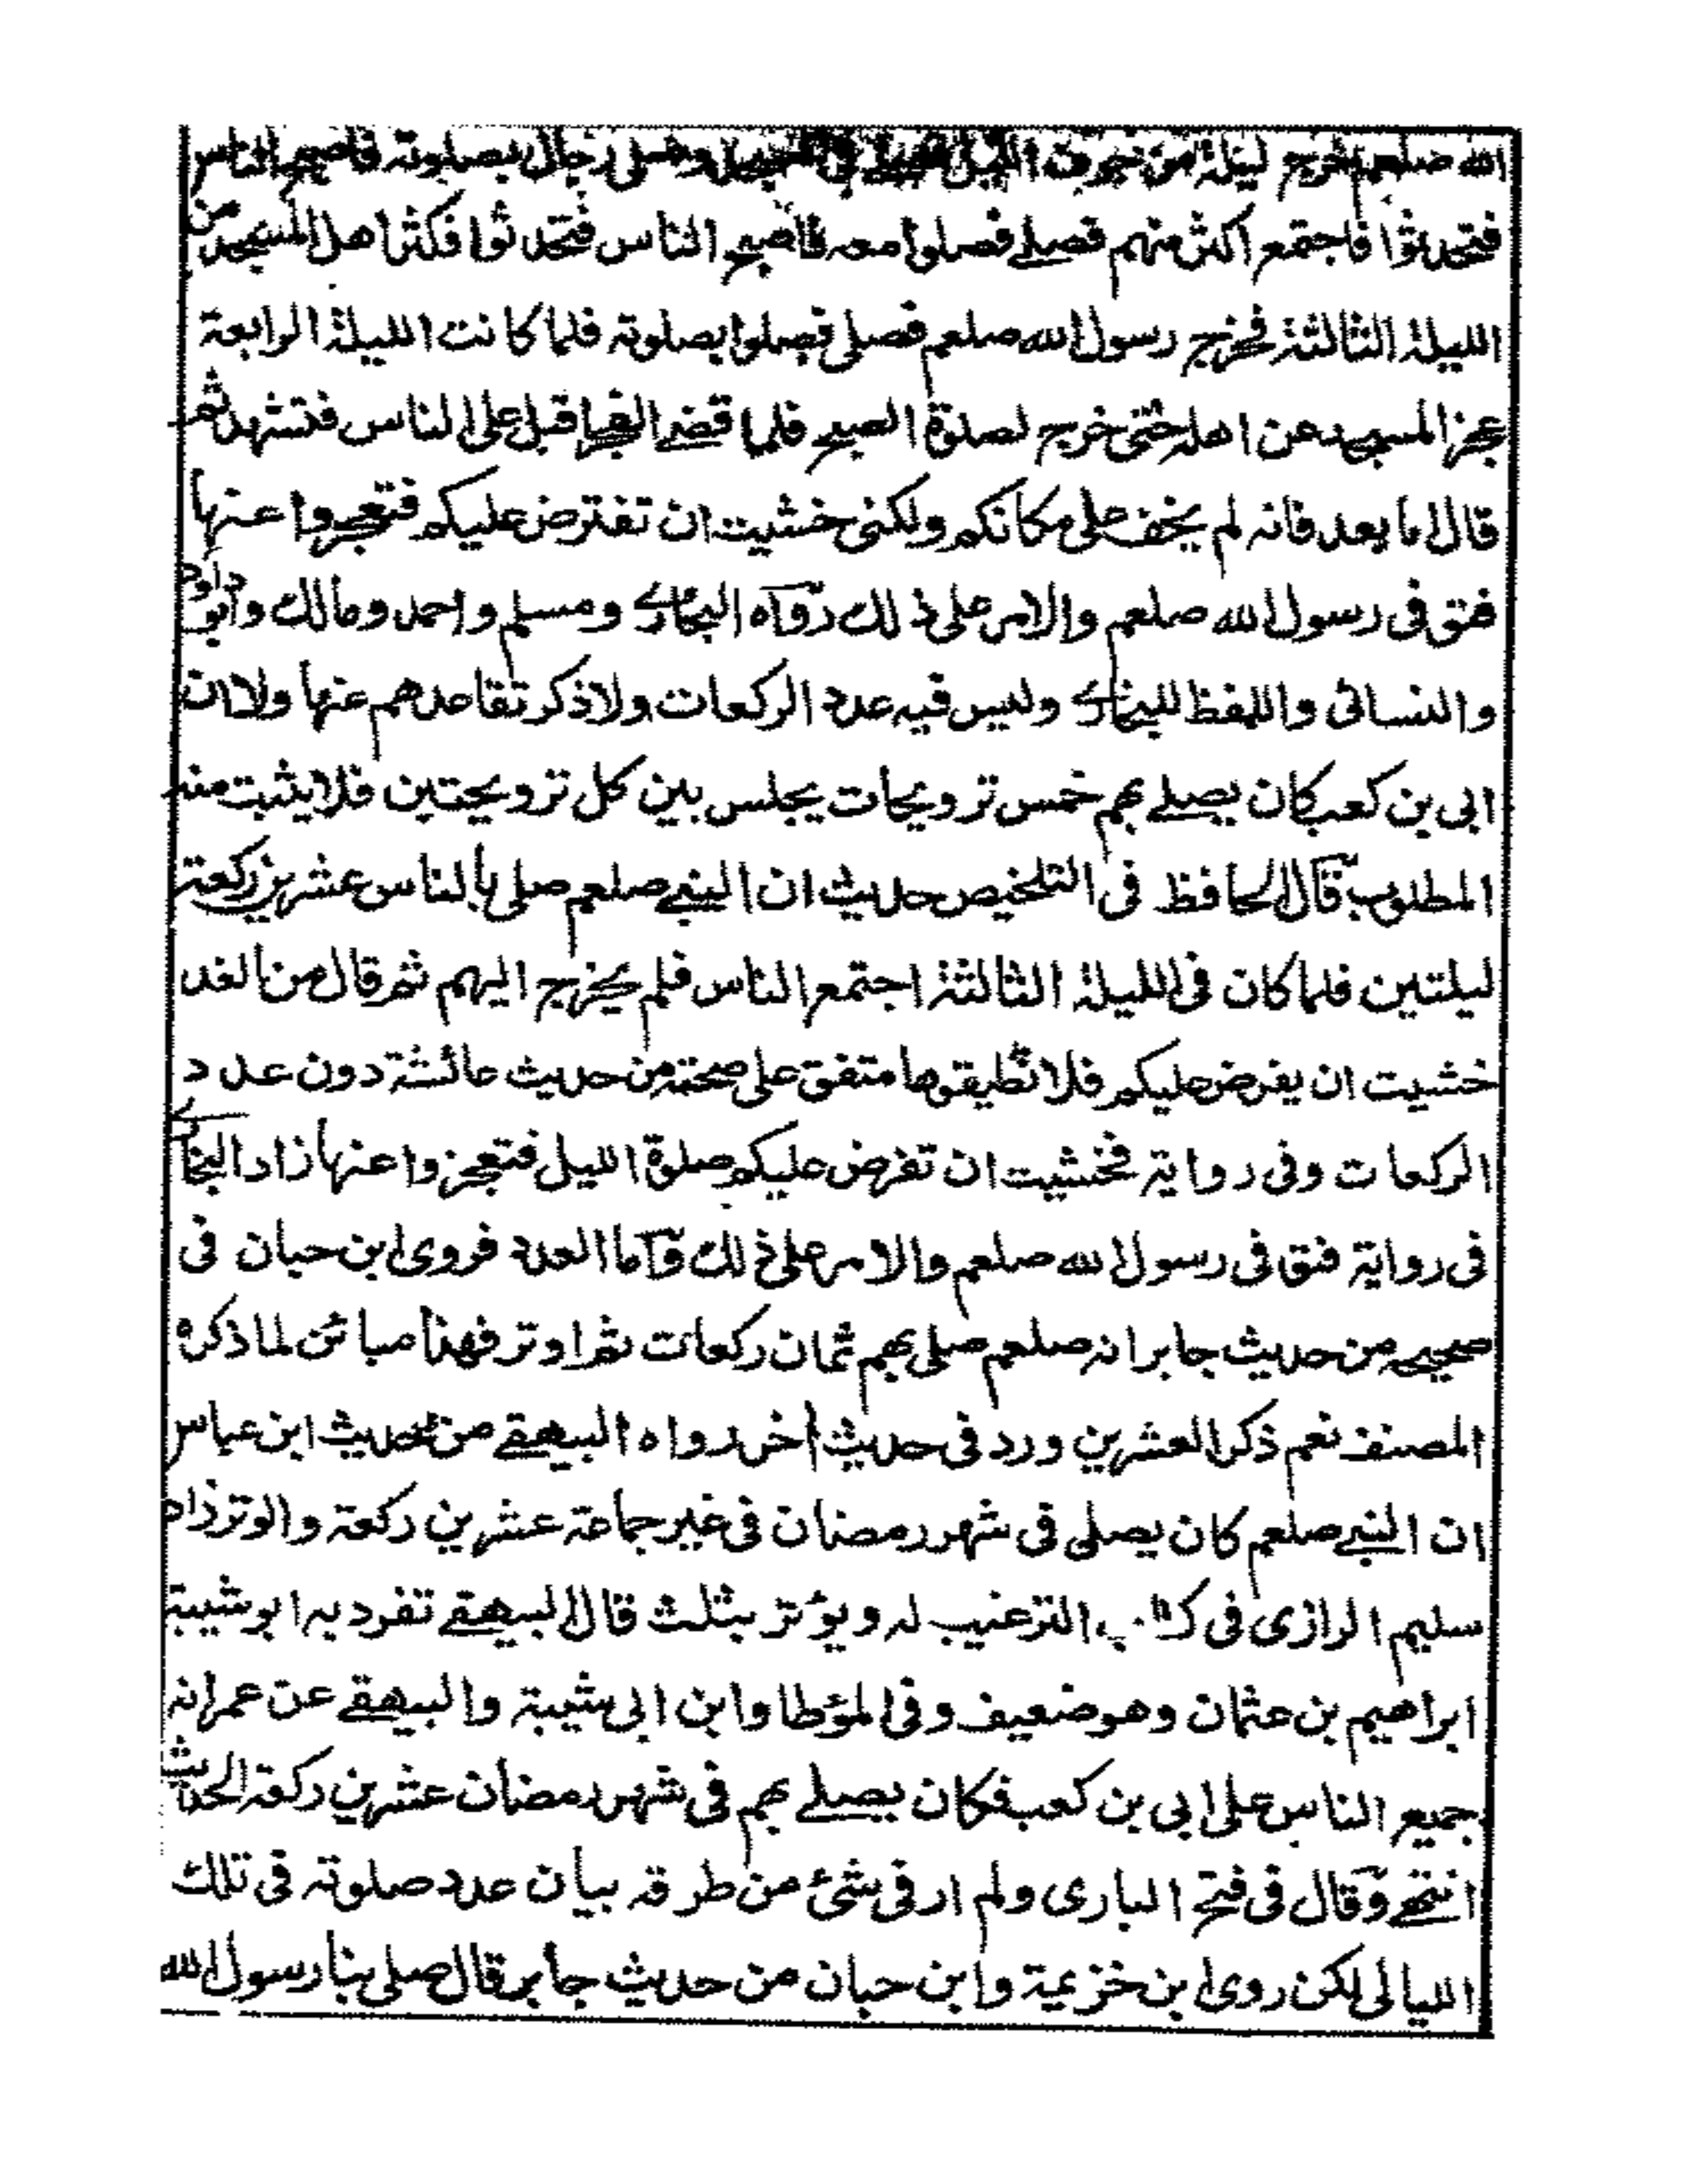 الله صلعم خرج ليلة من جوف الليل فصلى فى المسجد وصلى رجال بصلوته فاصبح الناس
فتحدثوا فاجتمع اكثر منهم فصلے فصلوا معه فاصبح الناس فتحدثوا فكثر اهل المسجد من
الليلة الثالثة فخرج رسول الله صلعم فصلى فصلوا بصلوته فلما كانت الليلة الرابعة
عجز المسجد عن اهله حتى خرج لصلوة الصبح فلما قضے الفجر اقبل على الناس فتشهد ثم
قال اما بعد فانه لم يخف على مكانكم ولكنى خشيت ان تفترض عليكم فتعجزوا عنها
فتوفى رسول الله صلعم والامر على ذلك رواه البخارے ومسلم واحمد ومالك وابو داود
والنسائى واللفظ للبخارے وليس فيه عدد الركعات ولا ذكر تقاعدهم عنها ولا ان
ابى بن كعب كان يصلے بهم خمس ترويحات يجلس بين كل ترويحتين فلا يثبت منه
المطلوب قال الحافظ فى التلخيص حديث ان النبے صلعم صلى بالناس عشرين ركعة
ليلتين فلما كان فى الليلة الثالثة اجتمع الناس فلم يخرج اليهم ثم قال من الغد
خشيت ان يفرض عليكم فلا تطيقوها متفق على صحته من حديث عائشة دون عدد
الركعات وفى رواية فخشيت ان تفرض عليكم صلوة الليل فتعجزوا عنها زاد البخارے
فى رواية فتوفى رسول الله صلعم والامر على ذلك واما العدد فروى ابن حبان فى
صحيحه من حديث جابر انه صلعم صلى بهم ثمان ركعات ثم اوتر فهذا مبائن لما ذكره
المصنف نعم ذكر العشرين ورد فى حديث اخر رواه البيهقے من حديث ابن عباس
ان النبے صلعم كان يصلى فى شهر رمضان فى غير جماعة عشرين ركعة والوتر زاد
سليم الرازى فى كتاب الترغيب له ويوتر بثلث قال البيهقے تفرد به ابو شيبة
ابراهيم بن عثمان وهو ضعيف وفى المؤطا وابن ابى شيبة والبيهقے عن عمر انه
جمع الناس على ابى بن كعب فكان يصلے بهم فى شهر رمضان عشرين ركعة الحديث
انتهے وقال فى فتح البارى ولم ار فى شئ من طرقه بيان عدد صلوته فى تلك
الليالى لكن روى ابن خزيمة وابن حبان من حديث جابر قال صلى بنا رسول الله